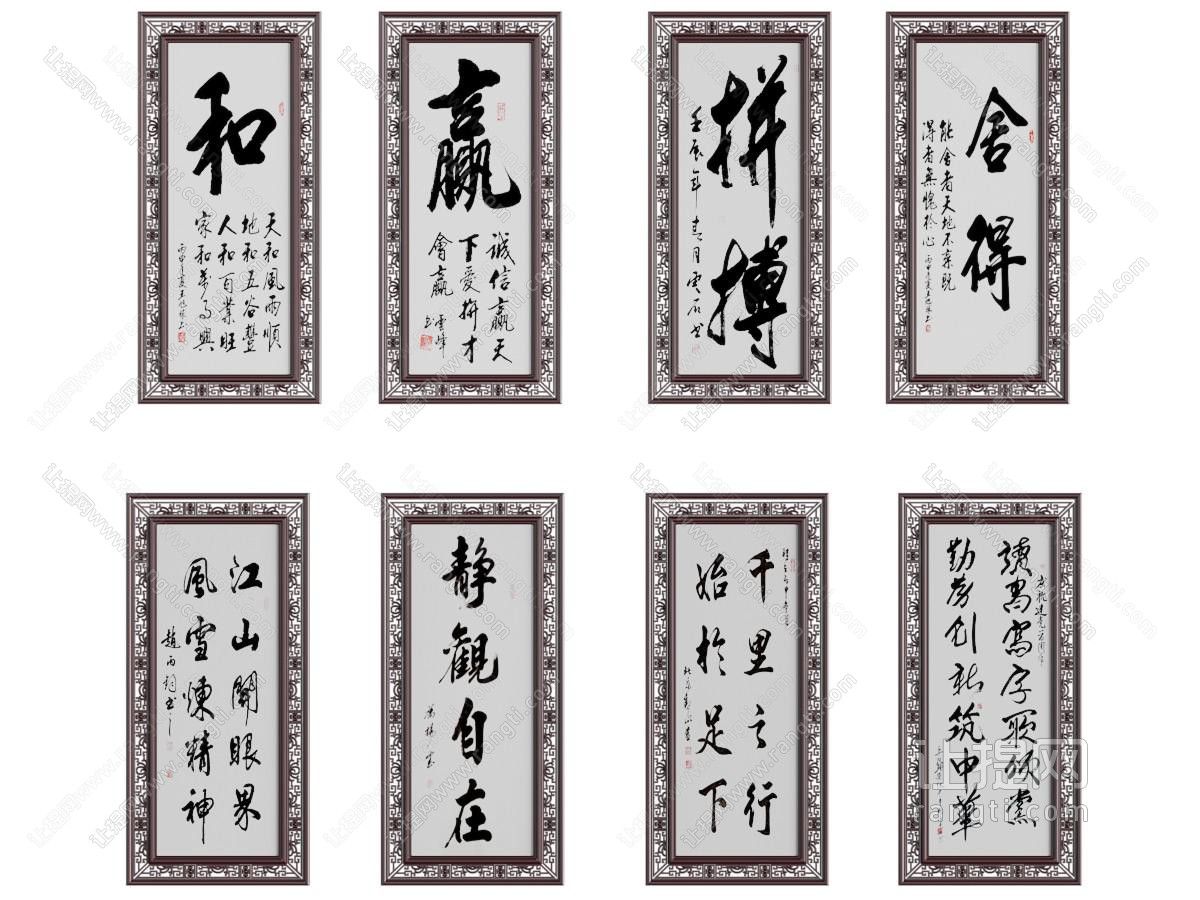 和
天和風雨順
地和五谷豐
人和百業旺
家和萬事興
贏
誠信贏天
下愛拼才
會贏
雲峰
拼搏
壬辰年春月雲石書
舍得
能舍者天地不棄既
得者無愧於心
江山開眼界
風雪煉精神
趙雨翔書
靜觀自在
千里之行
始於足下
讀書寫字
勤勞創新筑中華
让提网
rangti.com
让提网www.rangti.com